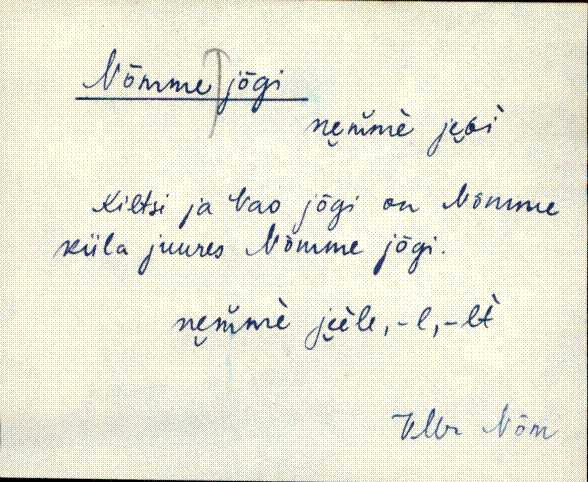 Nõmme jõgi
nem̆mè jeɢi
Kiltsi ja Vao jõgi on Nõmme
küla juures Nõmme jõgi.
nem̆mè jeèle, -l, -lt
VMr Nõm